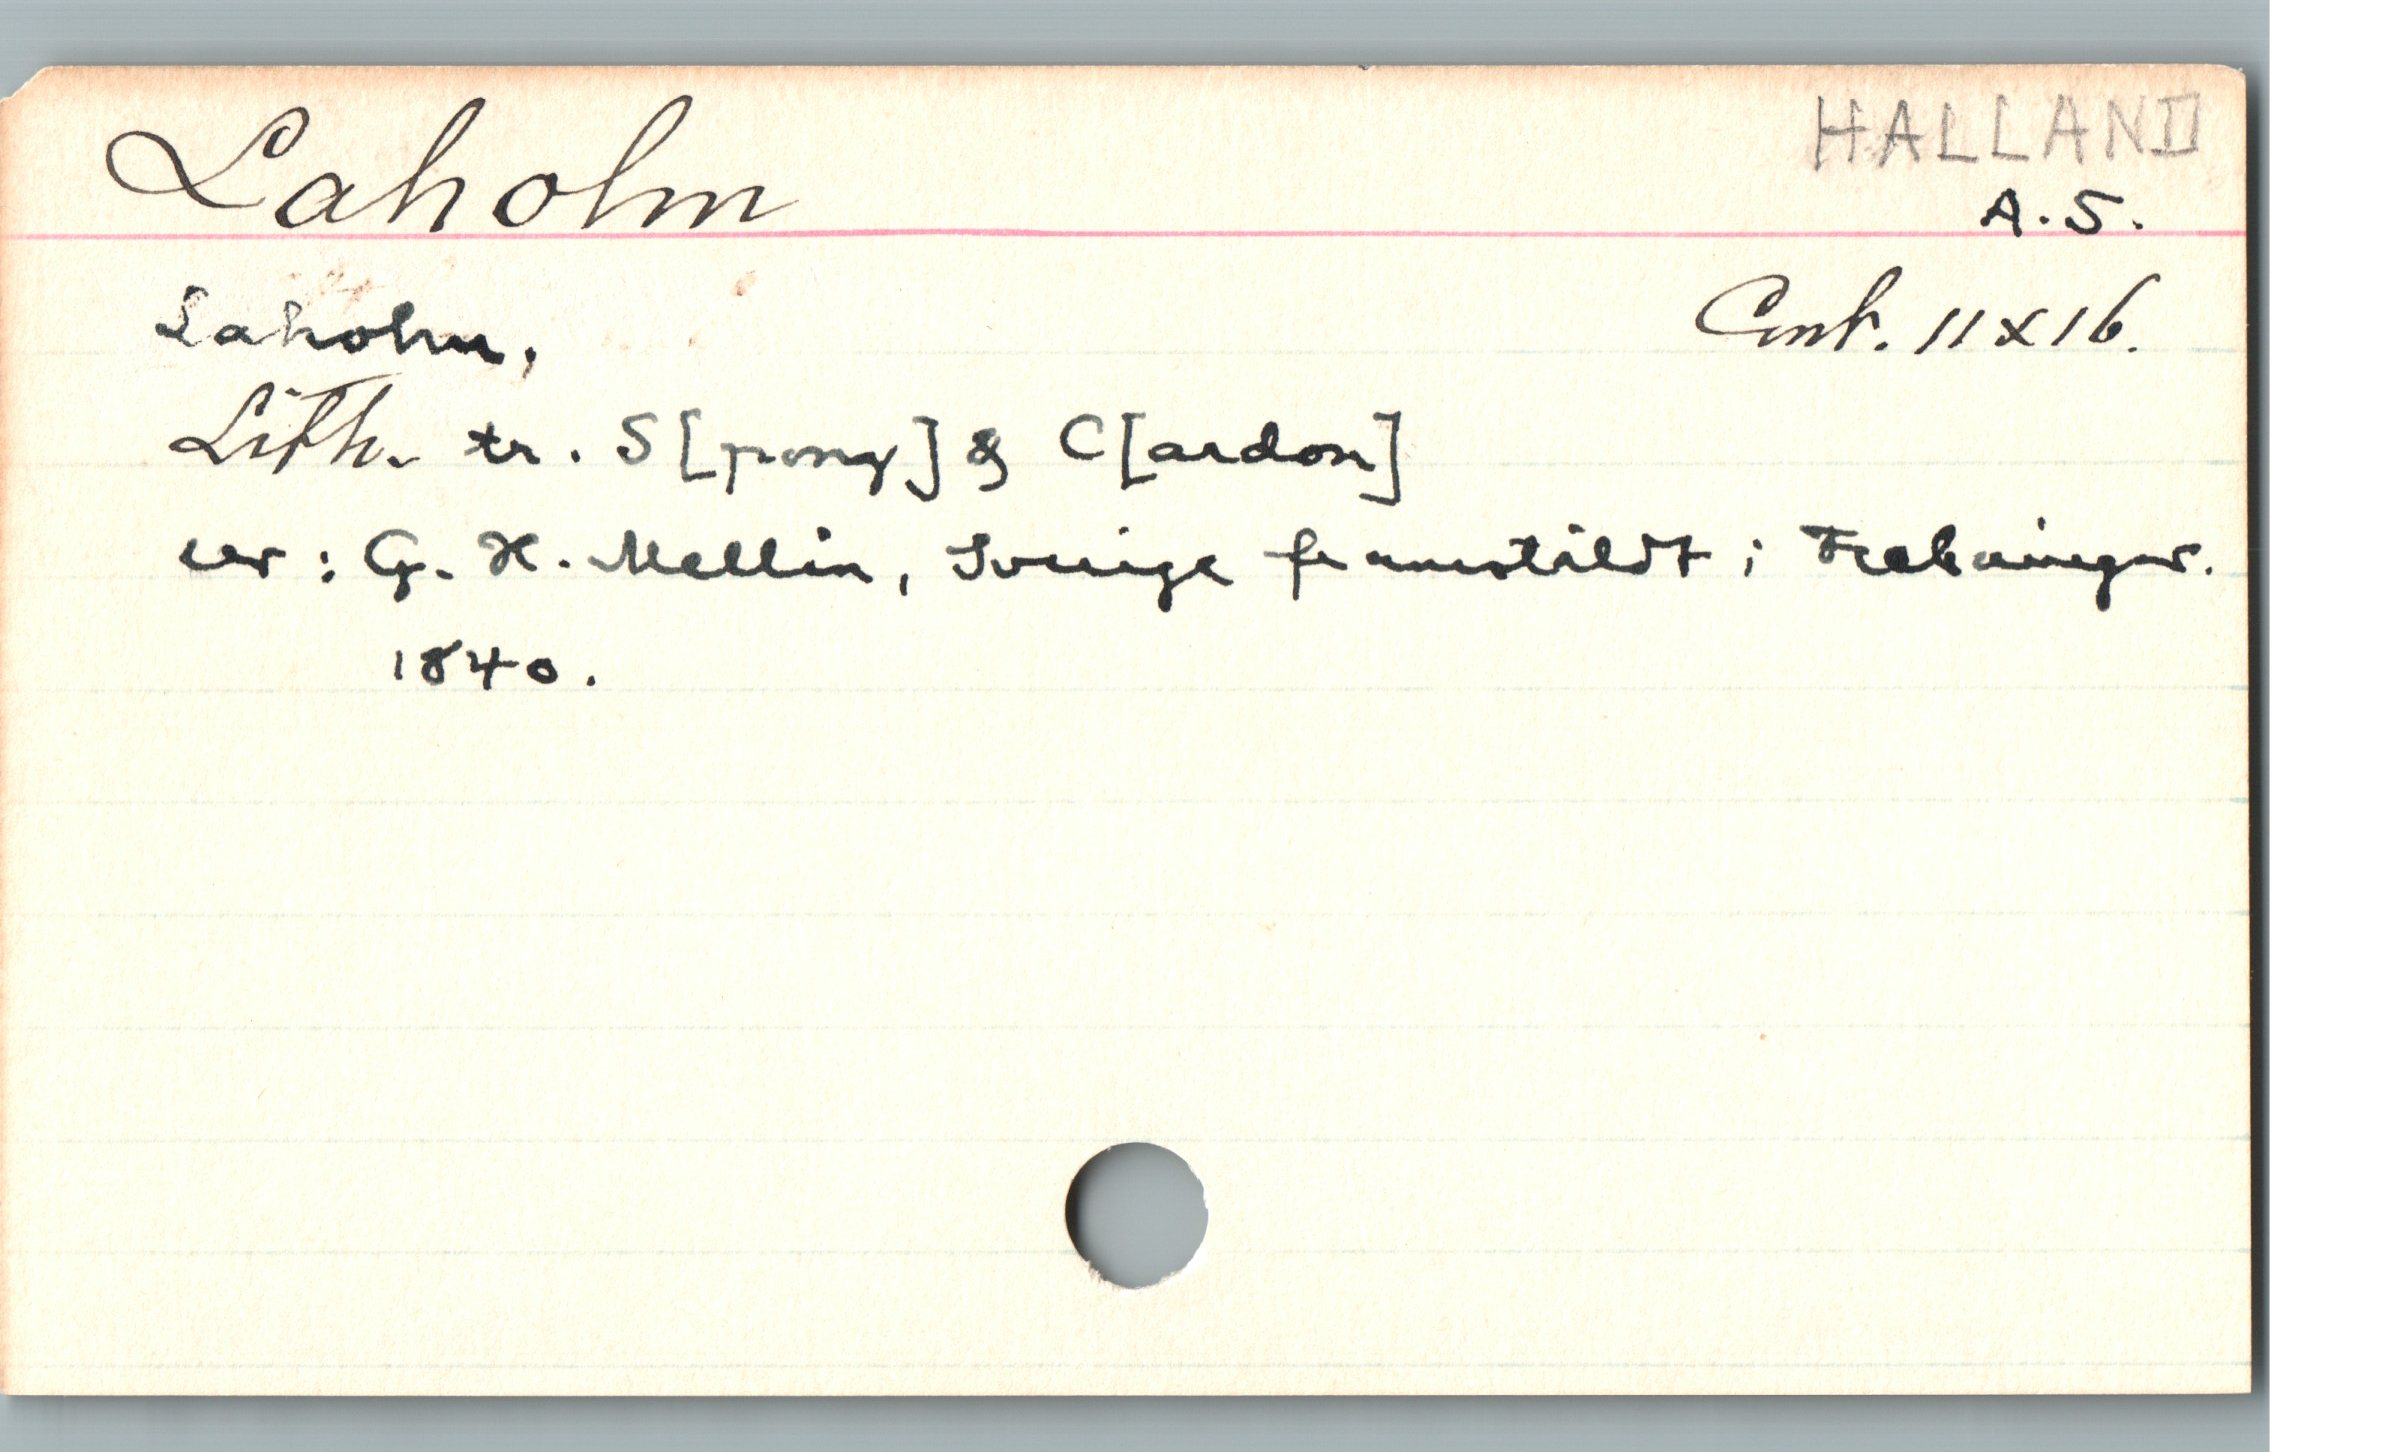 Laholm
HALLAND
A. S.
Cont. 11 x 16.
Laholm,
Lith. tr. S[pong] & C[ardon]
ur: G. H. Mellin, Sverige framstäldt i Teckningar.
1840.